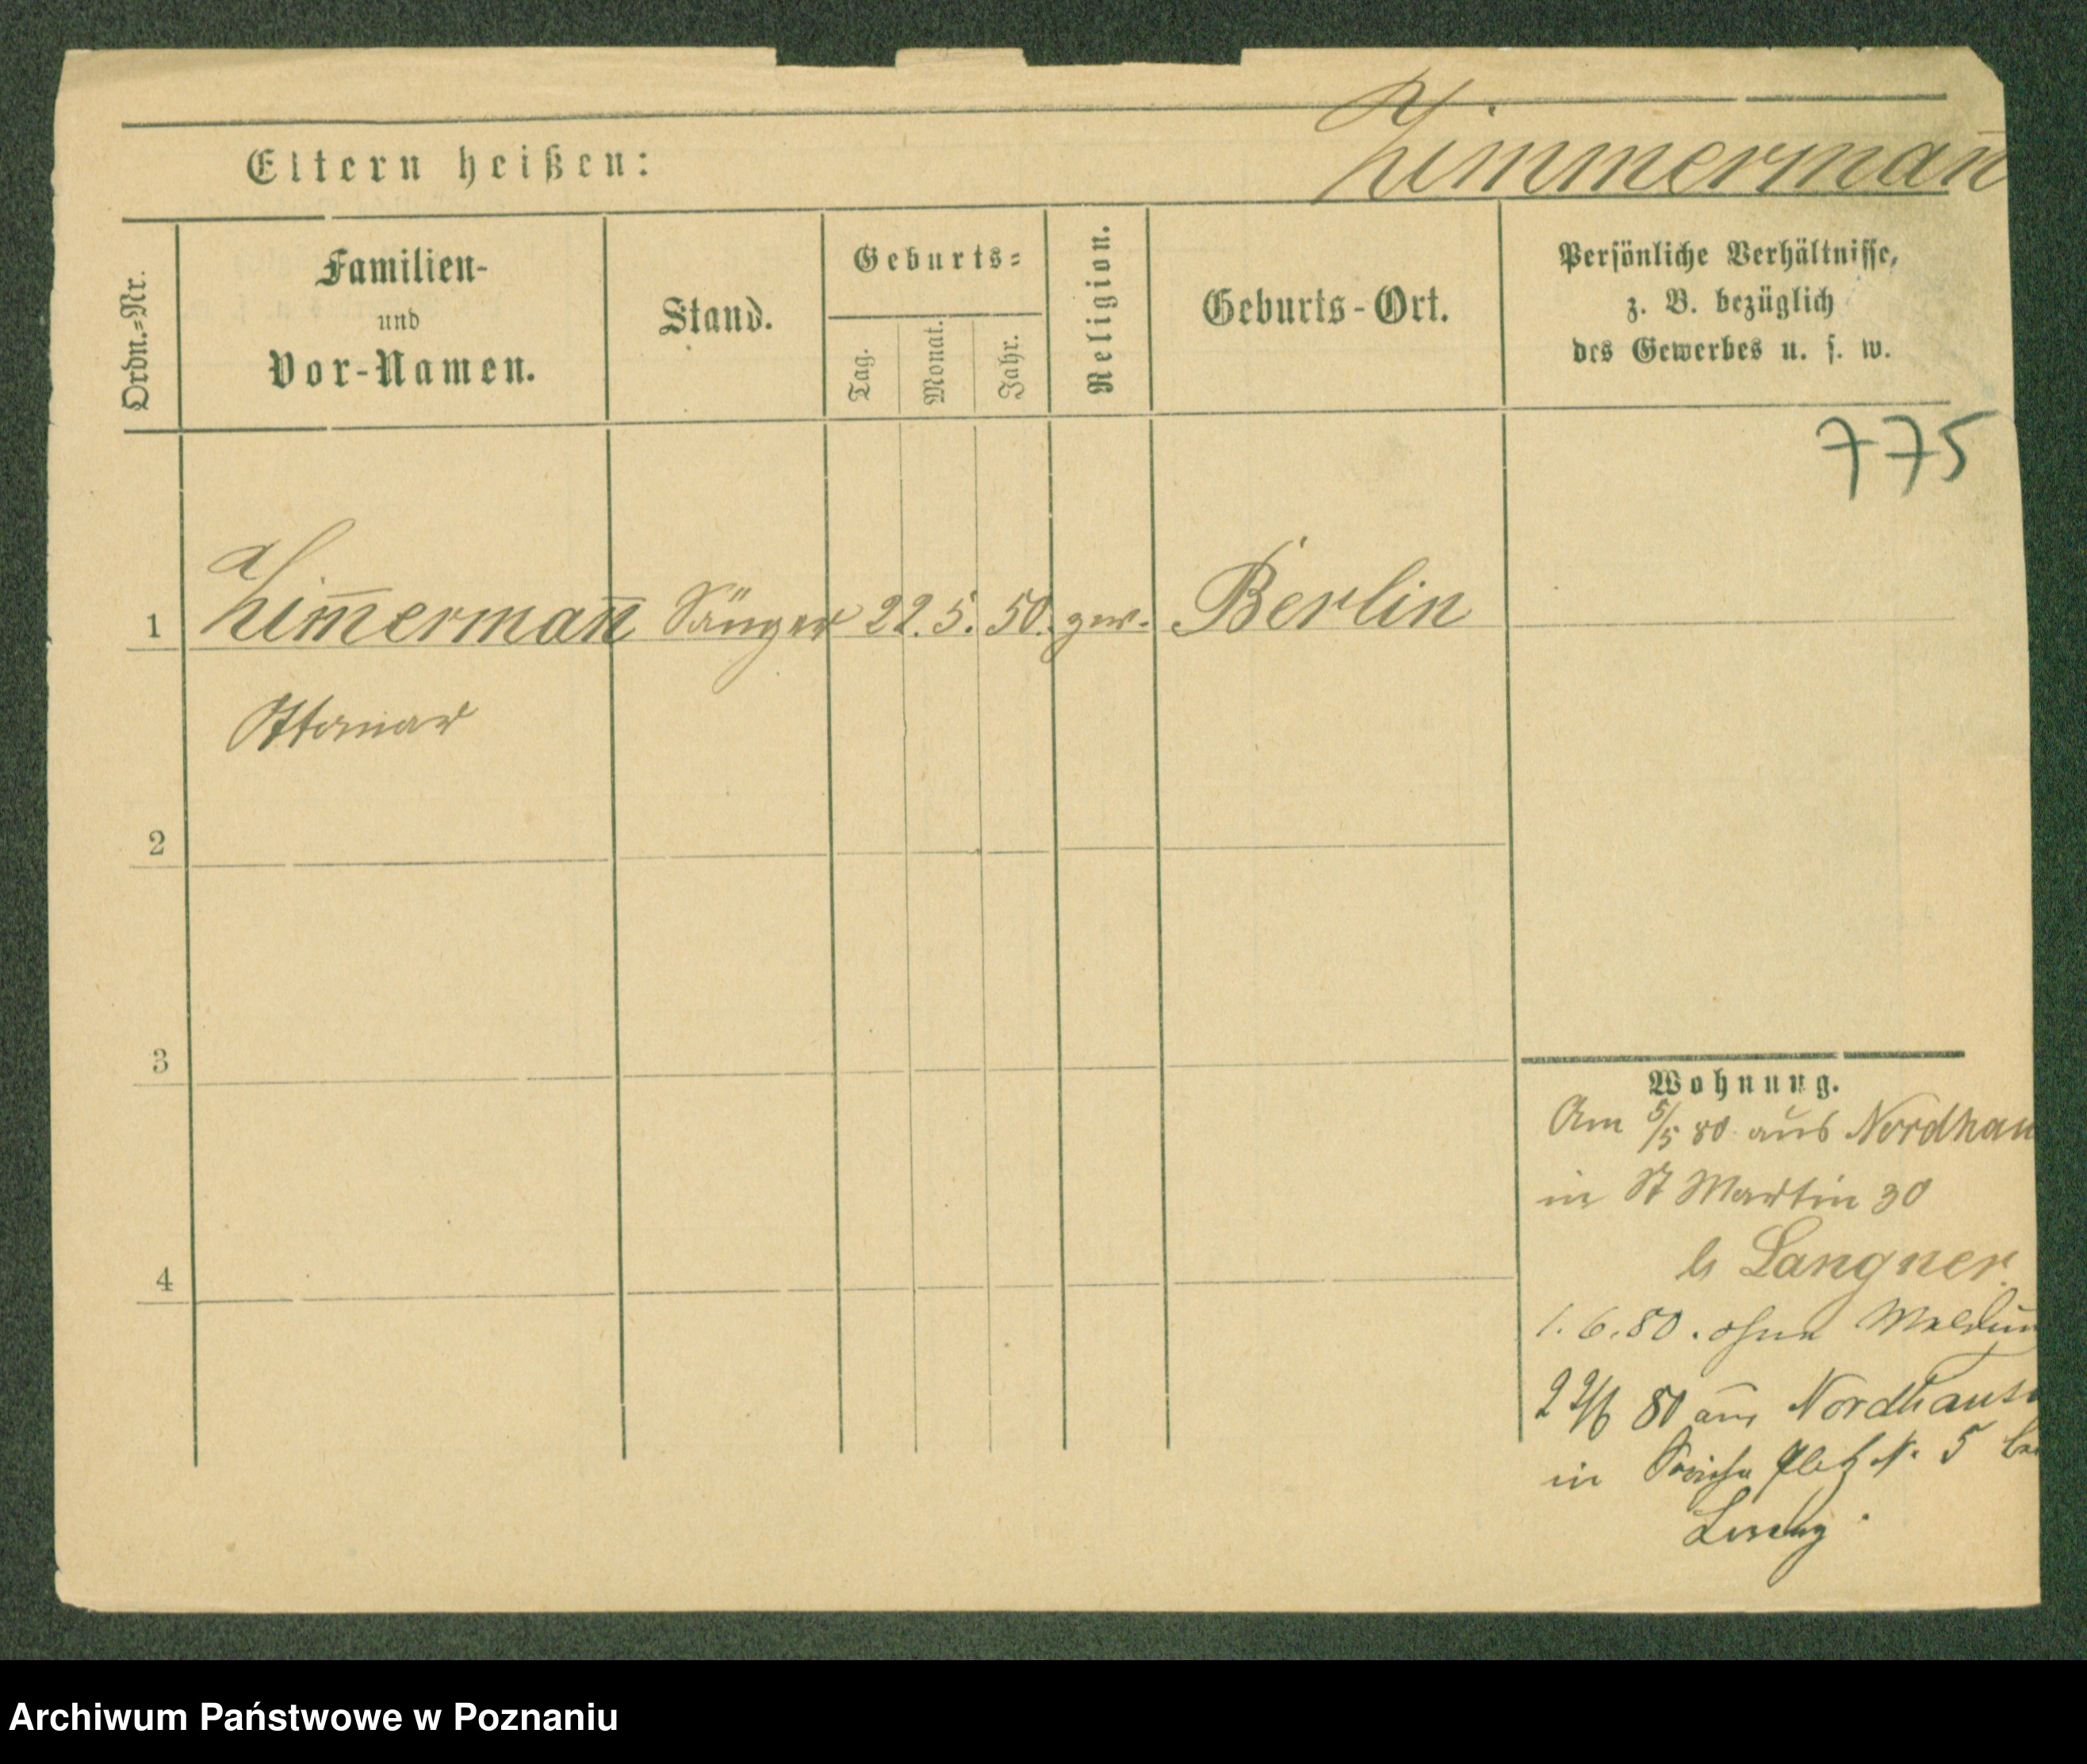 Zimmermañ
Eltern heißen:
Ordn.=Nr.
Familien-
und
Vor-Namen.
Stand.
Geburts=
Tag.
Monat.
Jahr.
Religion.
Geburts-Ort.
Persönliche Verhältnisse,
z. B. bezüglich
des Gewerbes u. s. w.
775
1 Zim̄erman̄ Sänger 22. 5. 50. Berlin
Ottomar
2
3
4
Wohnung.
Am 5/5 80 aus Nordhau
in St Martin 30
b Langner
1. 6. 80. ohne Meldung
22/6 80 aus Nordhause
in Platz N. 5
Archiwum Państwowe w Poznaniu